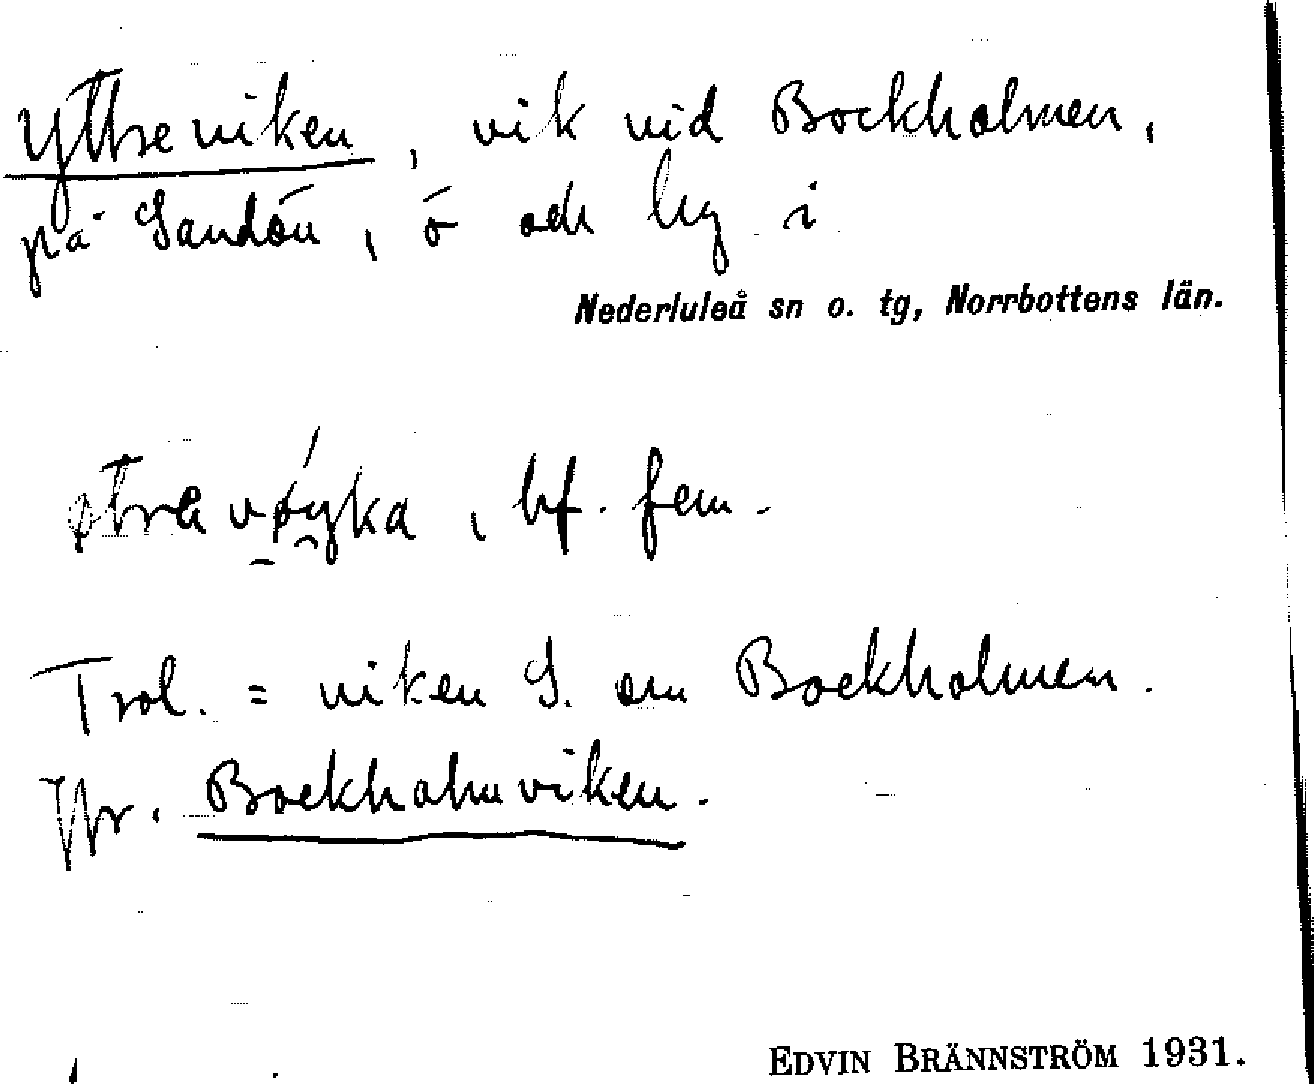 Yttreviken, vik vid Bockholmen,
på Sandön, ö och by i
Nederluleå sn o. tg, Norrbottens län.
øtra vøyka, bf. fem.
Trol. = viken S. om Bockholmen.
Jfr. Bockholmviken.
EDVIN BRÄNNSTRÖM 1931.